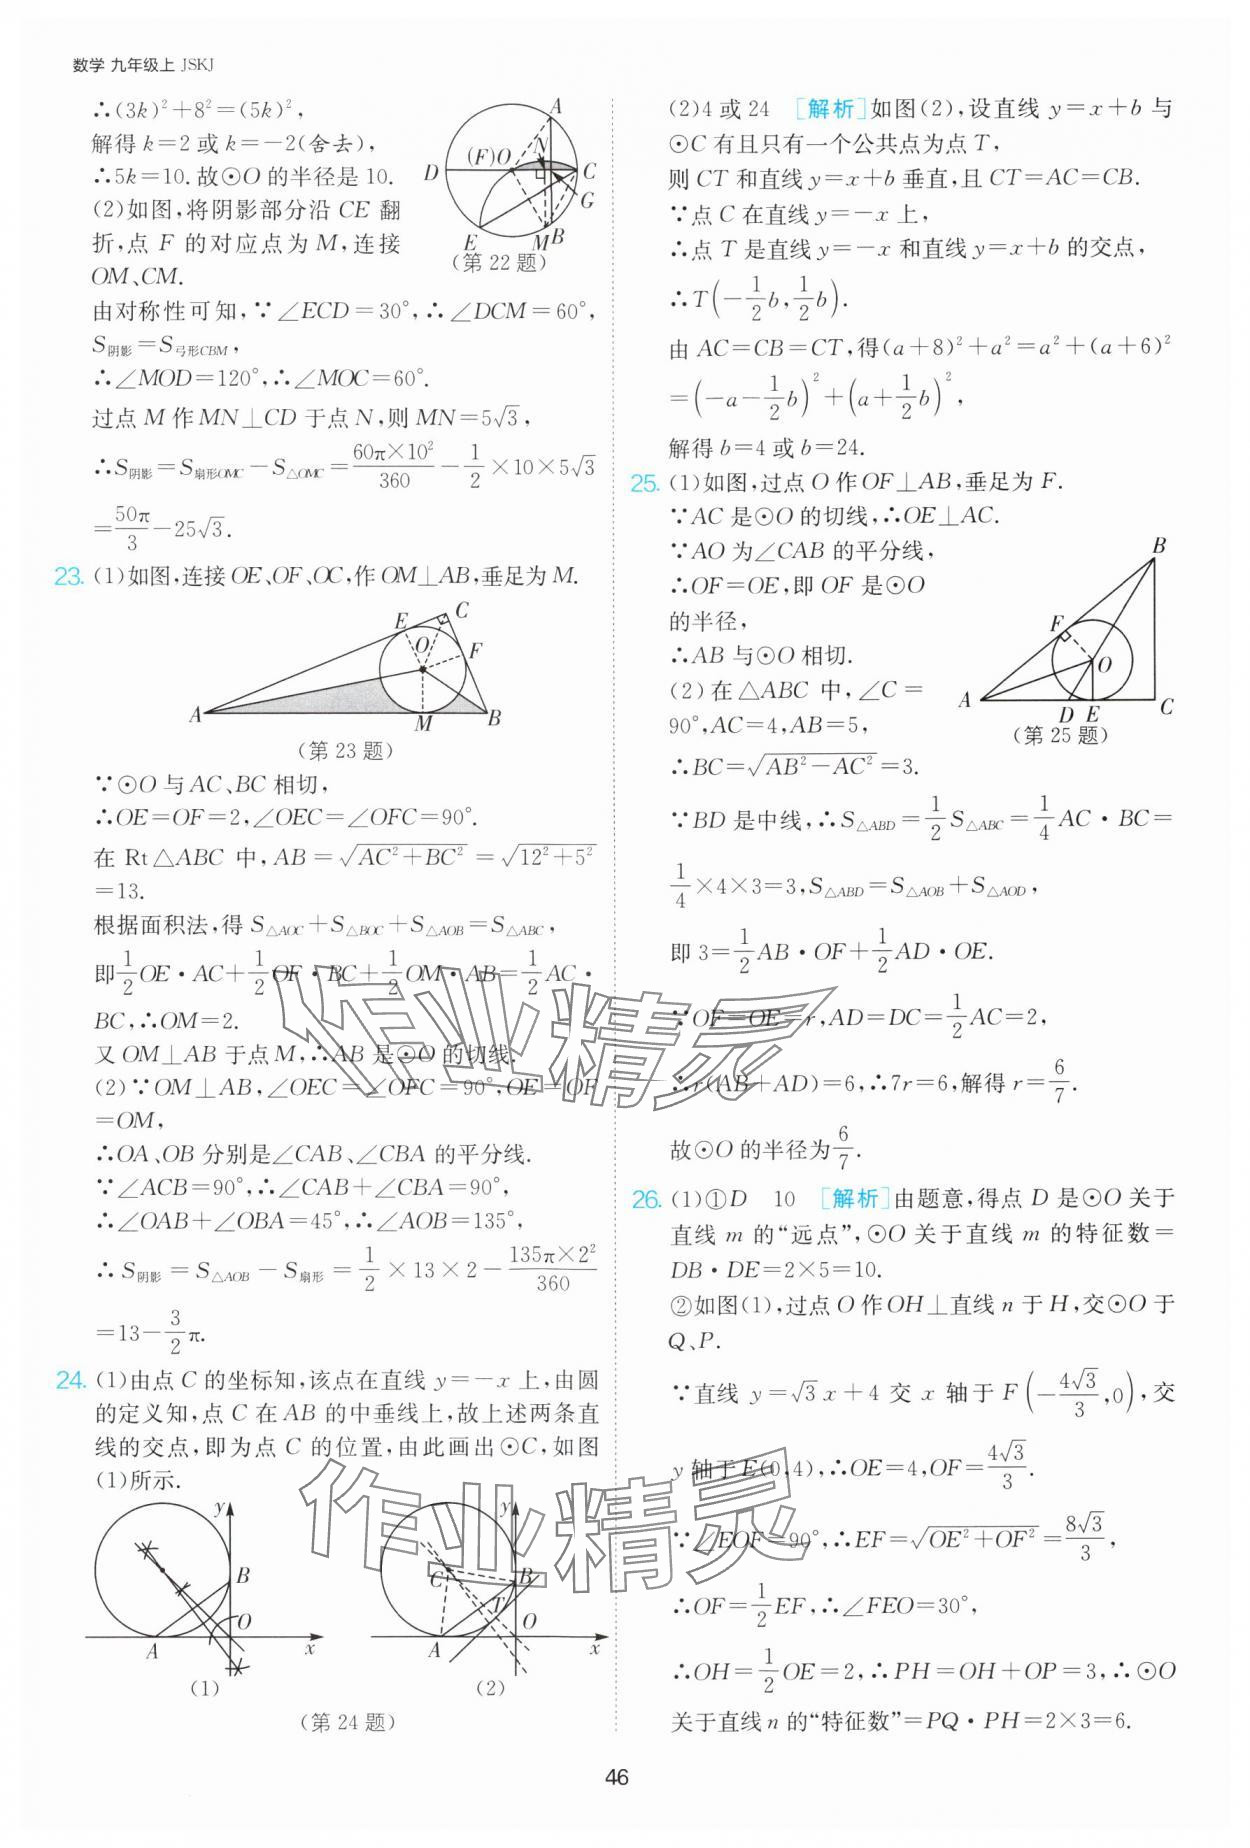 数学 九年级上 JSKJ
∴(3k)²+8²=(5k)²,
解得k=2或k=-2(舍去),
∴5k=10.故⊙O的半径是10.
(2)如图,将阴影部分沿CE翻
折,点F的对应点为M,连接
OM、CM.
A
N
D
(F)O
C
G
E
M
B
(第22题)
由对称性可知,∵∠ECD=30°,∴∠DCM=60°,
S阴影=S弓形CBM,
∴∠MOD=120°,∴∠MOC=60°.
过点M作MN⊥CD于点N,则MN=5√3,
∴S阴影=S扇形OMC-S△OMC=60π×10²/360-1/2×10×5√3
=50π/3-25√3.
23. (1)如图,连接OE、OF、OC,作OM⊥AB,垂足为M.
C
E
O
F
A
M
B
(第23题)
∵⊙O与AC、BC相切,
∴OE=OF=2,∠OEC=∠OFC=90°.
在Rt△ABC中,AB=√(AC²+BC²)=√(12²+5²)
=13.
根据面积法,得S△AOC+S△BOC+S△AOB=S△ABC,
即1/2OE·AC+1/2OF·BC+1/2OM·AB=1/2AC·
BC,∴OM=2.
又OM⊥AB于点M,∴AB是⊙O的切线.
(2)∵OM⊥AB,∠OEC=∠OFC=90°,OE=OF
=OM,
∴OA、OB分别是∠CAB、∠CBA的平分线.
∵∠ACB=90°,∴∠CAB+∠CBA=90°,
∴∠OAB+∠OBA=45°,∴∠AOB=135°,
∴S阴影=S△AOB-S扇形=1/2×13×2-135π×2²/360
=13-3/2π.
24. (1)由点C的坐标知,该点在直线y=-x上,由圆
的定义知,点C在AB的中垂线上,故上述两条直
线的交点,即为点C的位置,由此画出⊙C,如图
(1)所示.
y
B
O
A
x
(1)
y
C
B
T
O
A
x
(2)
(第24题)
(2)4或24 [解析]如图(2),设直线y=x+b与
⊙C有且只有一个公共点为点T,
则CT和直线y=x+b垂直,且CT=AC=CB.
∵点C在直线y=-x上,
∴点T是直线y=-x和直线y=x+b的交点,
∴T(-1/2b,1/2b).
由AC=CB=CT,得(a+8)²+a²=a²+(a+6)²
=(-a-1/2b)²+(a+1/2b)²,
解得b=4或b=24.
25. (1)如图,过点O作OF⊥AB,垂足为F.
∵AC是⊙O的切线,∴OE⊥AC.
∵AO为∠CAB的平分线,
∴OF=OE,即OF是⊙O
的半径,
∴AB与⊙O相切.
(2)在△ABC中,∠C=
90°,AC=4,AB=5,
B
F
O
A
D
E
C
(第25题)
∴BC=√(AB²-AC²)=3.
∵BD是中线,∴S△ABD=1/2S△ABC=1/4AC·BC=
1/4×4×3=3,S△ABD=S△AOB+S△AOD,
即3=1/2AB·OF+1/2AD·OE.
∵OF=OE=r,AD=DC=1/2AC=2,
∴r(AB+AD)=6,∴7r=6,解得r=6/7.
故⊙O的半径为6/7.
26. (1)①D 10 [解析]由题意,得点D是⊙O关于
直线m的“远点”,⊙O关于直线m的特征数=
DB·DE=2×5=10.
②如图(1),过点O作OH⊥直线n于H,交⊙O于
Q、P.
∵直线y=√3x+4交x轴于F(-4√3/3,0),交
y轴于E(0,4),∴OE=4,OF=4√3/3.
∵∠EOF=90°,∴EF=√(OE²+OF²)=8√3/3,
∴OF=1/2EF,∴∠FEO=30°,
∴OH=1/2OE=2,∴PH=OH+OP=3,∴⊙O
关于直线n的“特征数”=PQ·PH=2×3=6.
作业精灵
作业精灵
46